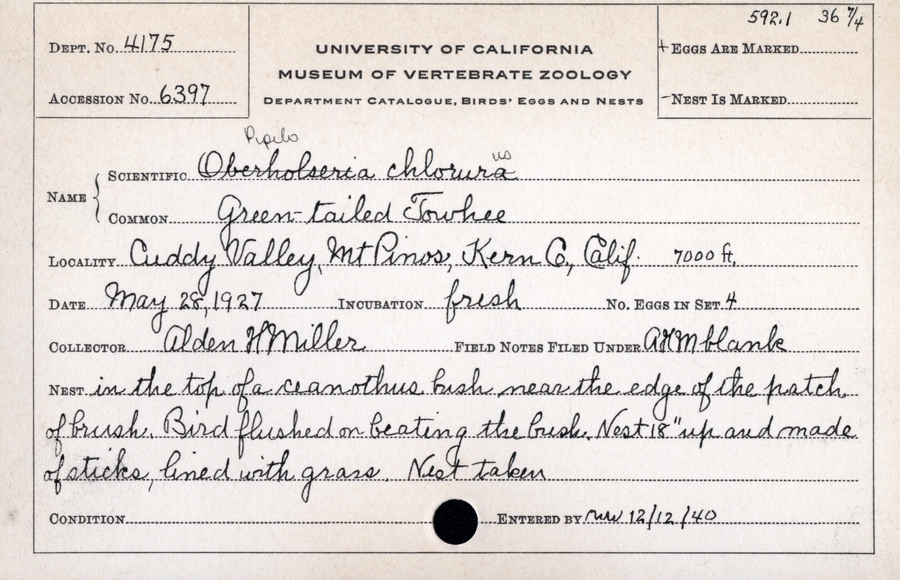 592.1 36 7/4
Dept. No. 4175
UNIVERSITY OF CALIFORNIA
+ Eggs Are Marked
MUSEUM OF VERTEBRATE ZOOLOGY
Accession No. 6397
Department Catalogue, Birds' Eggs and Nests
- Nest Is Marked
Pipilo
us
Name { Scientific Oberholseria chlorura
Common Green-tailed Towhee
Locality Cuddy Valley, Mt Pinos, Kern Co., Calif. 7000 ft.
Date May 28, 1927 Incubation fresh No. Eggs in Set 4
Collector Alden H Miller Field Notes Filed Under AHM blank
Nest in the top of a ceanothus bush near the edge of the patch
of brush. Bird flushed on beating the bush. Nest 18" up and made
of sticks, lined with grass. Nest taken
Condition Entered by 12/12/40